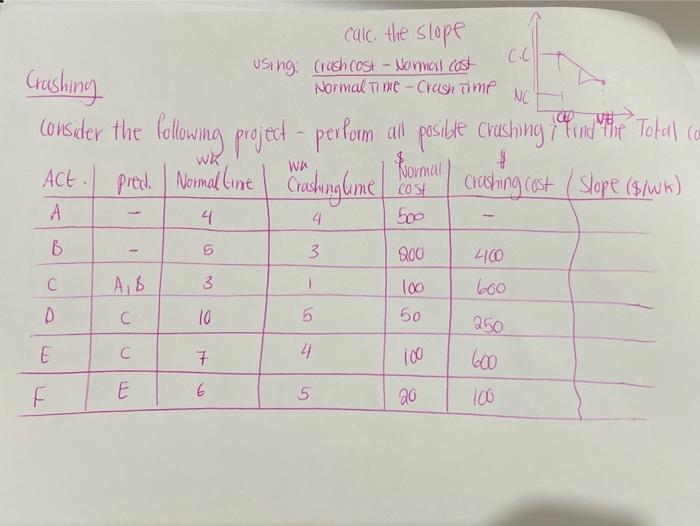 calc. the slope
using: Crash cost - Normal cost
Normal Time - Crash Time
C.C
NC
Crashing
Consider the following project - perform all posible crashing ; find the Total
wk wk $ $
ACT. pred. Normal time Crashing time Normal cost crashing cost Slope ($/wk)
A - 4 4 500 -
B - 5 3 200 400
C A, B 3 1 100 600
D C 10 5 50 250
E C 7 4 100 600
F E 6 5 20 100